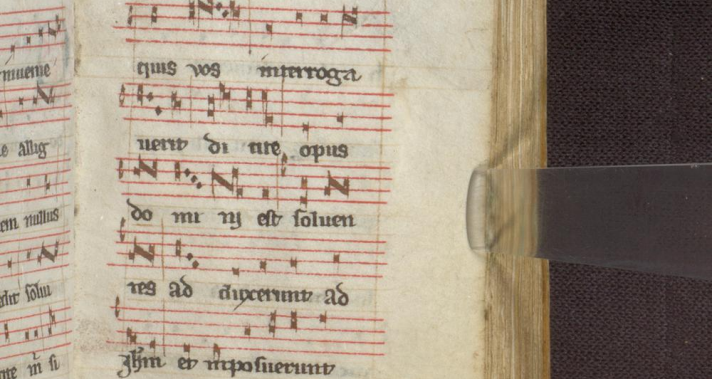 nueme
e allig
em nullus
nte m si
quis vos interroga
uerit di cite opus
do mi nj est soluen
tes ad duxerunt ad
Jhm et inposuerunt